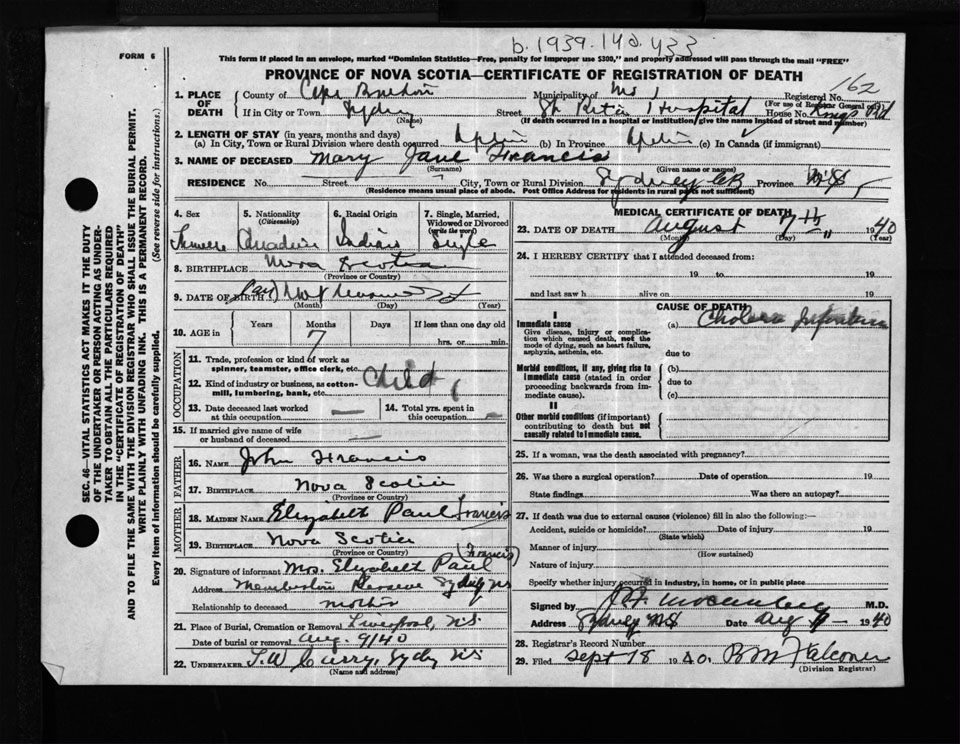 b. 1939. 140. 433
FORM 6
This form if placed in an envelope, marked "Dominion Statistics—Free, penalty for improper use $300," and property addressed will pass through the mail "FREE"
PROVINCE OF NOVA SCOTIA—CERTIFICATE OF REGISTRATION OF DEATH
162
1. PLACE OF DEATH
County of Cape Breton Municipality of No 1 Registered No.
(For use of Registrar General only)
If in City or Town Sydney St. Hospital House No. Kings Rd
(Name) (If death occurred in a hospital or institution, give the name instead of street and number)
2. LENGTH OF STAY (in years, months and days)
(a) In City, Town or Rural Division where death occurred (b) In Province (c) In Canada (if immigrant)
3. NAME OF DECEASED Mary Jane Francis
(Surname) (Given name or names)
RESIDENCE No. Street City, Town or Rural Division Sydney CB Province N.S.
(Residence means usual place of abode. Post Office Address for residents in rural parts not sufficient)
4. Sex 5. Nationality (Citizenship) 6. Racial Origin 7. Single, Married, Widowed or Divorced (write the word)
Canadian Indian Single
8. BIRTHPLACE Nova Scotia
(Province or Country)
9. DATE OF BIRTH
(Month) (Day) (Year)
10. AGE in Years Months Days If less than one day old
7 hrs. or min.
OCCUPATION
11. Trade, profession or kind of work as spinner, teamster, office clerk, etc.
12. Kind of industry or business, as cotton-mill, lumbering, bank, etc. Child
13. Date deceased last worked at this occupation —
14. Total yrs. spent in this occupation —
15. If married give name of wife or husband of deceased —
FATHER
16. NAME John Francis
17. BIRTHPLACE Nova Scotia
(Province or Country)
MOTHER
18. MAIDEN NAME Elizabeth Paul Francis
19. BIRTHPLACE Nova Scotia
(Province or Country)
20. Signature of informant Mrs. Elizabeth Paul (Francis)
Address Reserve Sydney NS
Relationship to deceased mother
21. Place of Burial, Cremation or Removal Liverpool, N.S.
Date of burial or removal Aug. 9/40
22. UNDERTAKER T.W. Curry, Sydney NS
(Name and address)
MEDICAL CERTIFICATE OF DEATH
23. DATE OF DEATH August 7th 1940
(Month) (Day) (Year)
24. I HEREBY CERTIFY that I attended deceased from:
19 to 19
and last saw h alive on 19
CAUSE OF DEATH
I
Immediate cause
Give disease, injury or complication which caused death, not the mode of dying, such as heart failure, asphyxia, asthenia, etc.
(a) Cholera Infantum
due to
Morbid conditions, if any, giving rise to immediate cause (stated in order proceeding backwards from immediate cause).
(b)
due to
(c)
II
Other morbid conditions (if important) contributing to death but not causally related to immediate cause.
25. If a woman, was the death associated with pregnancy?
26. Was there a surgical operation? Date of operation 19
State findings Was there an autopsy?
27. If death was due to external causes (violence) fill in also the following:
Accident, suicide or homicide? Date of injury 19
(State which)
Manner of injury
(How sustained)
Nature of injury
Specify whether injury occurred in industry, in home, or in public place
Signed by M.D.
Address Sydney NS Date Aug 1940
28. Registrar's Record Number
29. Filed Sept 18 1940. B M Falconer
(Division Registrar)
SEC. 46—VITAL STATISTICS ACT MAKES IT THE DUTY
OF THE UNDERTAKER OR PERSON ACTING AS UNDER-
TAKER TO OBTAIN ALL THE PARTICULARS REQUIRED
IN THE "CERTIFICATE OF REGISTRATION OF DEATH"
AND TO FILE THE SAME WITH THE DIVISION REGISTRAR WHO SHALL ISSUE THE BURIAL PERMIT.
WRITE PLAINLY WITH UNFADING INK. THIS IS A PERMANENT RECORD.
Every item of information should be carefully supplied. (See reverse side for instructions.)